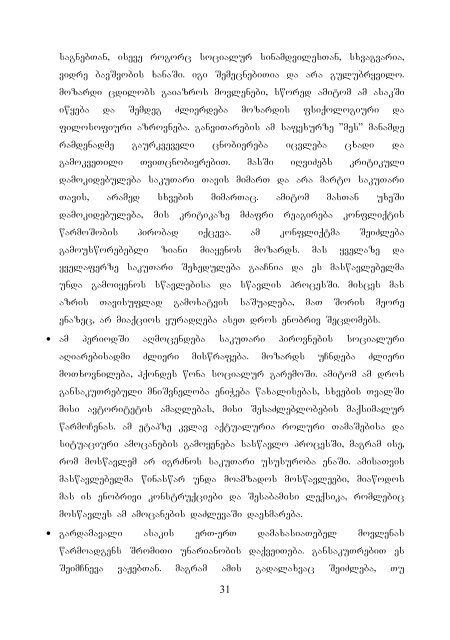 საგნებთან, ისევე როგორც სოციალურ სინამდვილესთან, სხვაგვარია,
ვიდრე ბავშვობის ხანაში. იგი შემეცნებითია და არა გულუბრყვილო.
მოზარდი ცდილობს გაიაზროს მოვლენები, სწორედ ამიტომ ამ ასაკში
იწყება და შემდეგ ძლიერდება მოზარდის ფსიქოლოგიური და
ფილოსოფიური აზროვნება. განვითარების ამ საფეხურზე ”მეს” მანამდე
რამდენადმე გაურკვეველი ცნობიერება იცვლება ცხადი და
გამოკვეთილი თვითცნობიერებით. მასში იღვიძებს კრიტიკული
დამოკიდებულება საკუთარი თავის მიმართ და არა მარტო საკუთარი
თავის, არამედ სხვების მიმართაც. ამიტომ მასთან უხეში
დამოკიდებულება, მის კრიტიკაზე მძაფრი რეაგირება კონფლიქტის
წარმოშობის პირობად იქცევა. ამ კონფლიქტმა შეიძლება
გამოუსწორებებლი ზიანი მიაყენოს მოზარდს. მას ყველაზე და
ყველაფერზე საკუთარი შეხედულება გააჩნია და ეს მასწავლებელმა
უნდა გამოიყენოს სწავლებისა და სწავლის პროცესში. მისცეს მას
აზრის თავისუფლად გამოხატვის საშუალება, მათ შორის მეორე
ენაზეც, არ მიაქციოს ყურადღება ასეთ დროს ენობრივ შეცდომებს.
• ამ პერიოდში აღმოცენდება საკუთარი პიროვნების სოციალური
აღიარებისადმი ძლიერი მისწრაფება. მოზარდს უჩნდება ძლიერი
მოთხოვნილება, ჰქონდეს წონა სოციალურ გარემოში. ამიტომ ამ დროს
განსაკუთრებული მნიშვნელობა ენიჭება წახალისებას, სხვების თვალში
მისი ავტორიტეტის ამაღლებას, მისი შესაძლებლობების მაქსიმალურ
წარმოჩენას. ამ ეტაპზე კვლავ აქტუალურია როლური თამაშებისა და
სიტუაციური ამოცანების გამოყენება სასწავლო პროცესში, მაგრამ ისე,
რომ მოსწავლემ არ იგრძნოს საკუთარი უსუსურობა ენაში. ამისათვის
მასწავლებელმა წინასწარ უნდა მოამზადოს მოსწავლეები, მიაწოდოს
მას ის ენობრივი კონსტრუქციები და შესაბამისი ლექსიკა, რომლებიც
მოსწავლეს ამ ამოცანების დაძლევაში დაეხმარება.
• გარდამავალი ასაკის ერთ-ერთ დამახასიათებელ მოვლენას
წარმოადგენს შრომითი უნარიანობის დაქვეითება. განსაკუთრებით ეს
შეიმჩნევა ვაჟებთან. მაგრამ ამის გადალახვაც შეიძლება, თუ
31